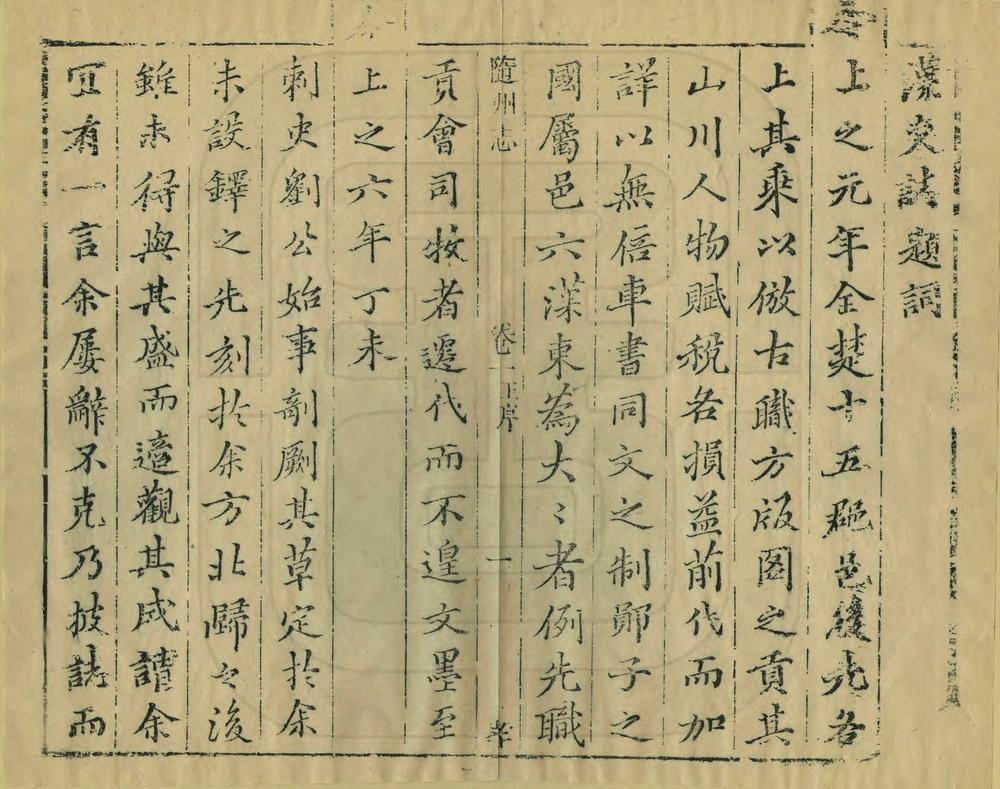 漢東誌題詞
上之元年全楚十五郡邑後先各
上其乘以倣古職方版圖之貢其
山川人物賦稅各損益前代而加
詳以無倍車書同文之制鄖子之
國屬邑六漢東為大〻者例先職
隨州志 卷一 序 一
貢會司牧者遷代而不遑文墨至
上之六年丁未
刺史劉公始事剞劂其草定於余
未設鐸之先刻於余方北歸之後
雖未得與其盛而適觀其成請余
宜有一言余屢辭不克乃披誌而